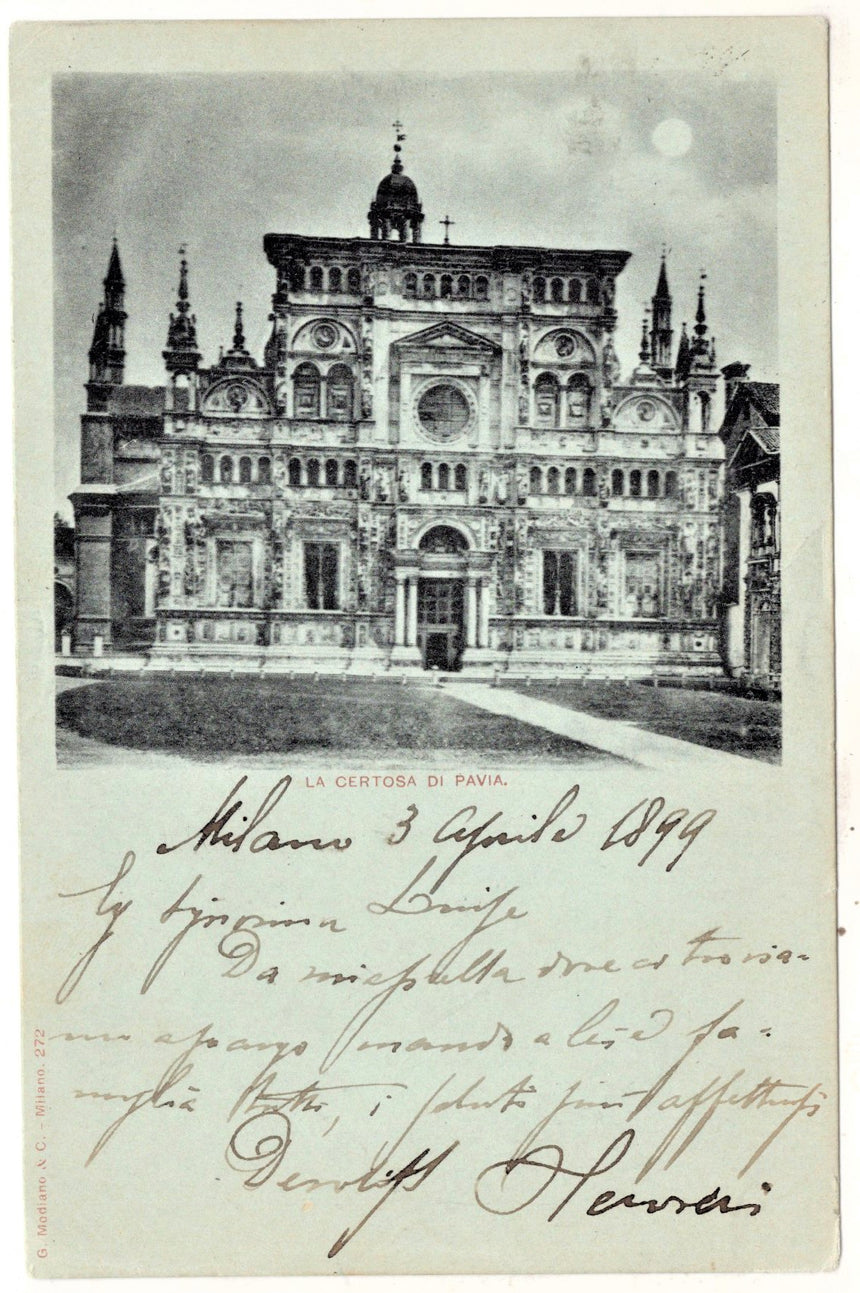 LA CERTOSA DI PAVIA.
Milano 3 Aprile 1899
Signorina Luise
Da dove ci trovia-
mo mando a lei e fa-
miglia tutti, i saluti più affettuosi
Devotiss
G. Modiano & C. - Milano. 272